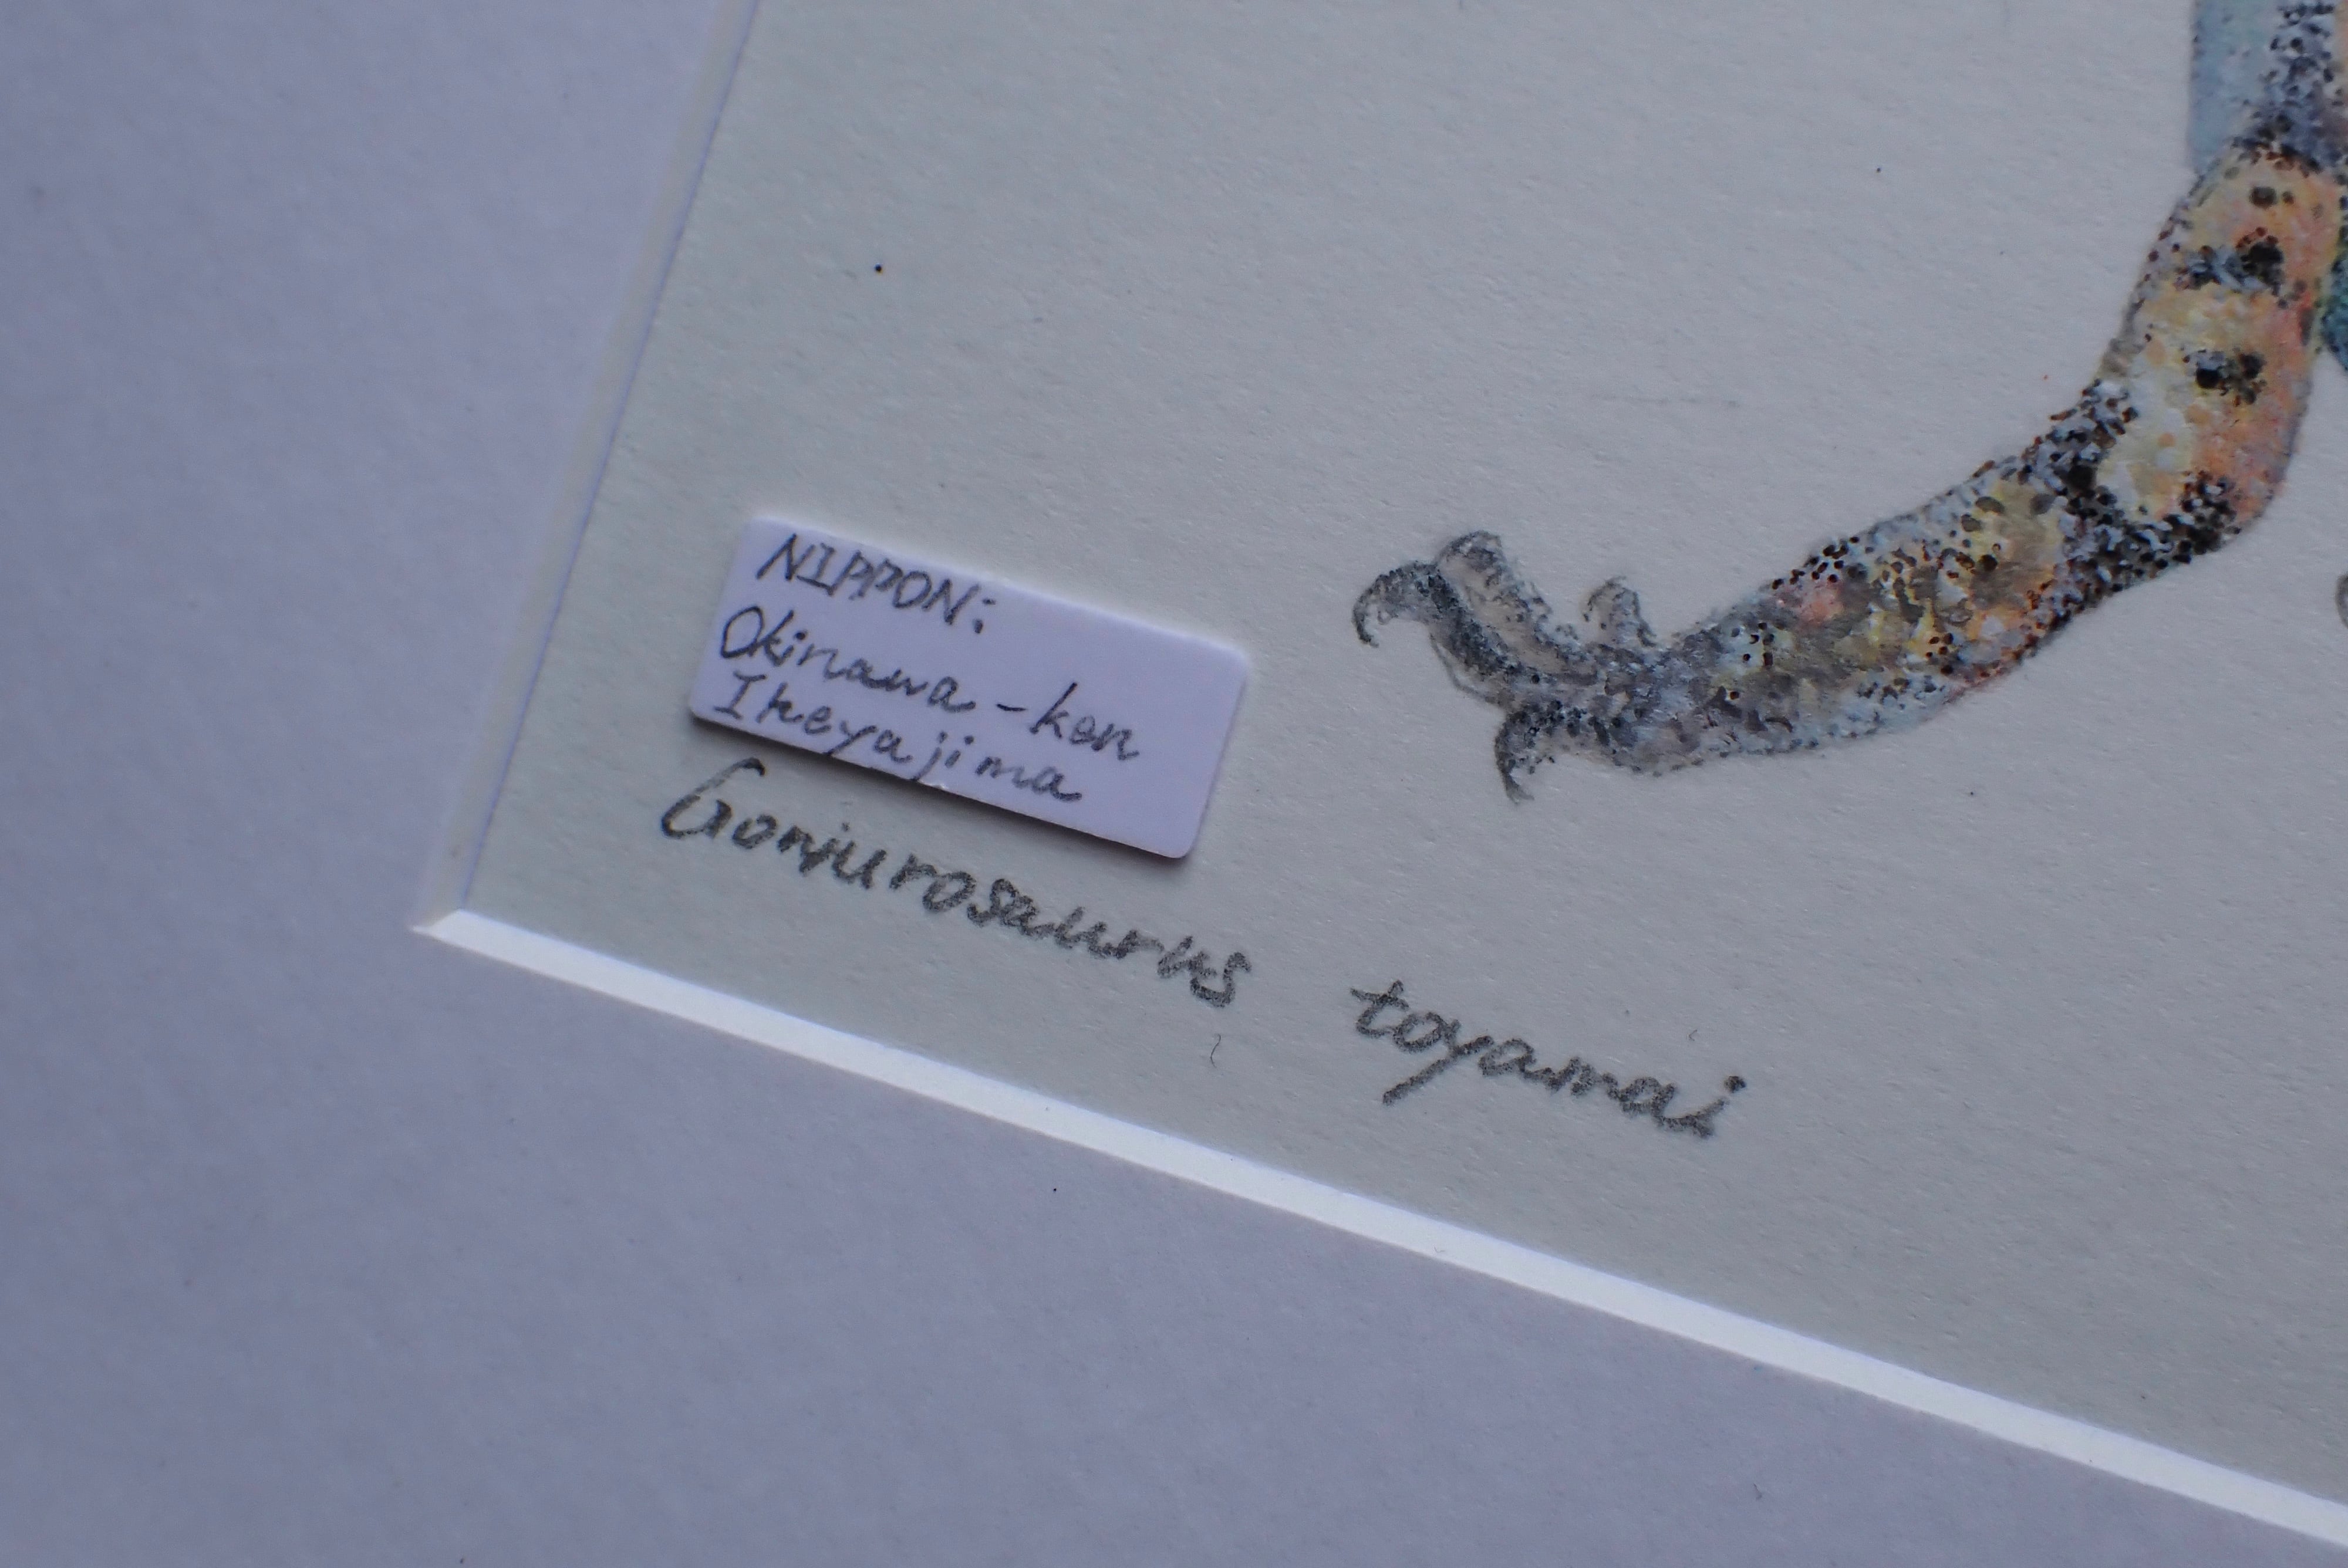 NIPPON:
Okinawa-ken
Iheyajima
Goniurosaurus toyamai